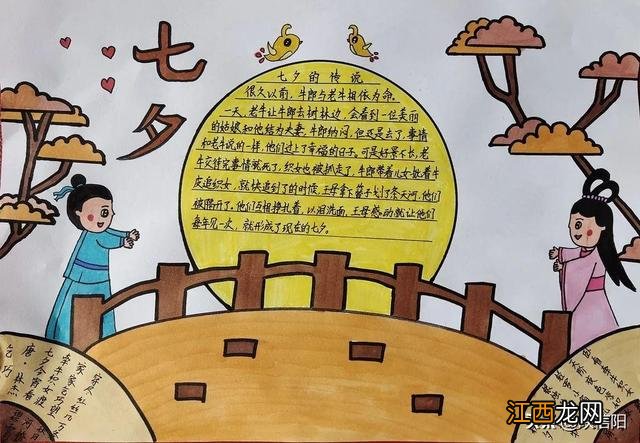 七夕
七夕的传说
很久以前,牛郎与老牛相依为命。
一天,老牛让牛郎去树林边,会看到一位美丽
的姑娘和他结为夫妻,牛郎纳闷,但还是去了,事情
和老牛说的一样,他们过上了幸福的日子。可是好景不长,老
牛交待完事情就死了,织女也被抓走了,牛郎带着儿女批着牛
皮追织女,就快追到了的时候,王母拿下簪子划了条天河,他们
被隔开了。他们互相挣扎着,以泪洗面,王母感动就让他们
每年见一次,就形成了现在的七夕。
乞巧
唐·林杰
七夕今宵看
牵牛织女
家家乞巧
江西龙网